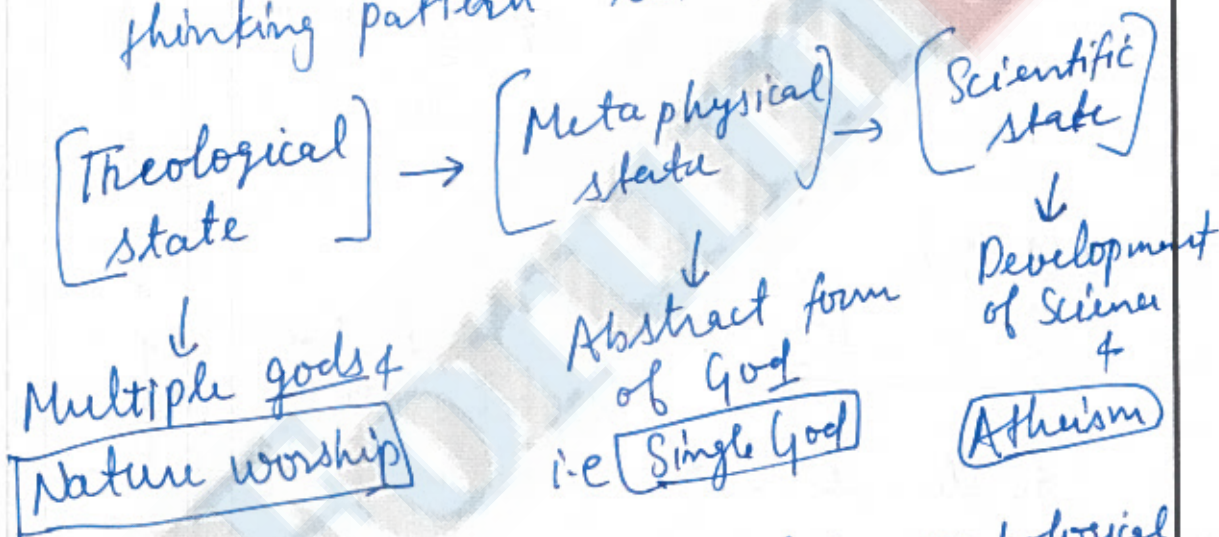 thinking pattern
[Theological state] → [Metaphysical state] → [Scientific state]
↓ ↓ ↓
Multiple gods & Nature worship
Abstract form of God i.e Single God
Development of Science & Atheism
Forum